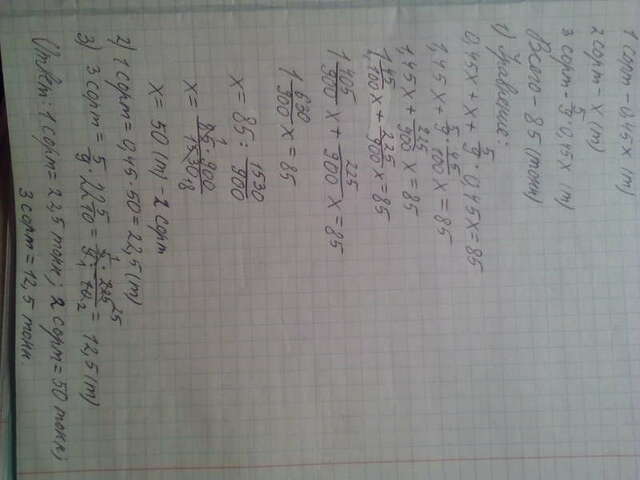 1 сорт - 0,45x (т)
2 сорт - x (т)
3 сорт - 5/9 · 0,45x (т)
Всего - 85 (тонн)
1) Уравнение:
0,45x + x + 5/9 · 0,45x = 85
1,45x + 5/9 · 45/100 x = 85
1,45x + 225/900 x = 85
1 45/100 x + 225/900 x = 85
1 405/900 x + 225/900 x = 85
1 630/900 x = 85
x = 85 : 1530/900
x = 50 (т) - 2 сорт
2) 1 сорт = 0,45 · 50 = 22,5 (т)
3) 3 сорт = 5/9 · 22 5/10 = 5 · 225 / 9 · 10 = 12,5 (т)
Ответ: 1 сорт = 22,5 тонн; 2 сорт = 50 тонн;
3 сорт = 12,5 тонн.